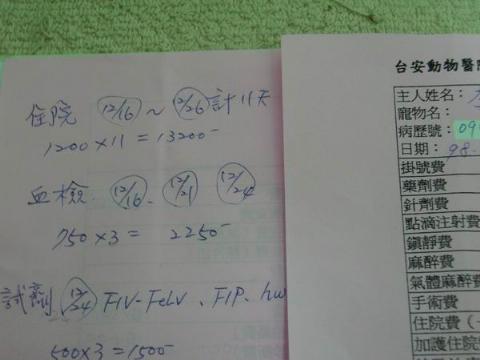 住院 12/16 ~ 12/26 計11天
1200×11=13200-
血檢 12/16、12/21 12/24
750×3=2250-
試劑 12/24 FIV-FeLV、FIP、hw
500×3=1500-
台安動物醫院
主人姓名：
寵物名：
病歷號：09
日期：98.
掛號費
藥劑費
針劑費
點滴注射費
鎮靜費
麻醉費
氣體麻醉費
手術費
住院費（一
加護住院